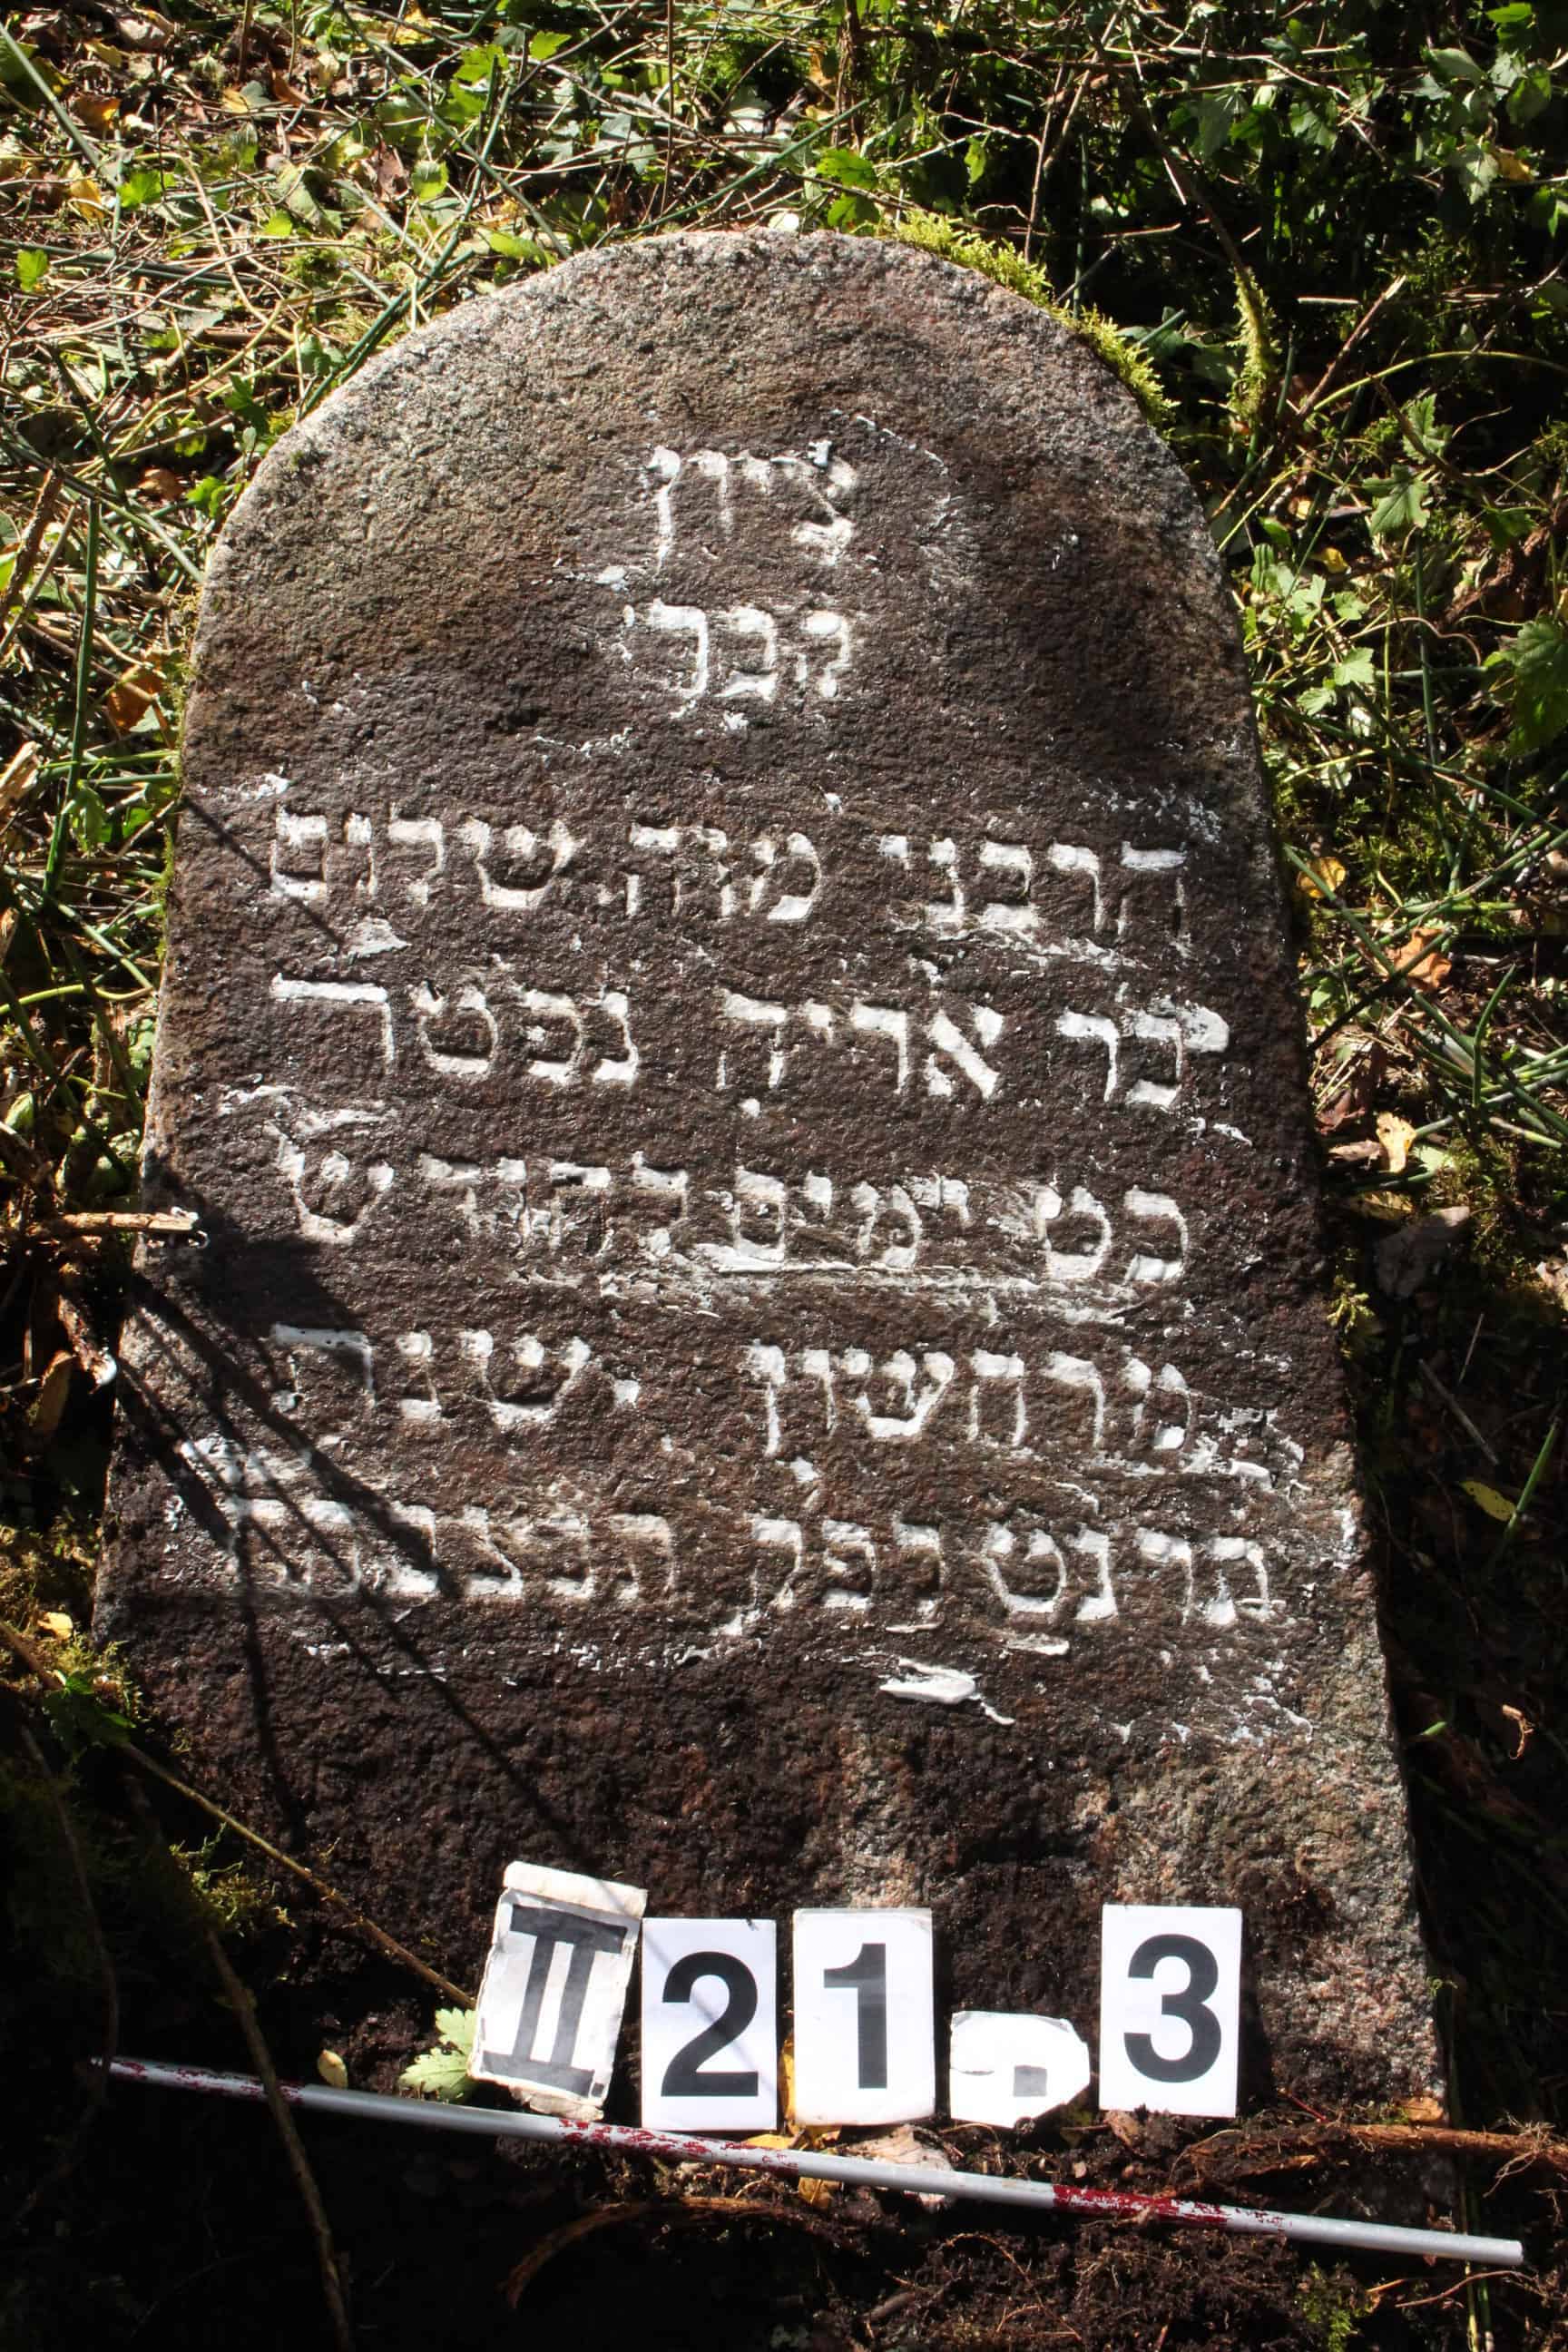 ציון
קבר
הרבני מוה שלום
בר אריה נפטר
כט ימים לחודש
מרחשון שנת
תרנט לפק תנצבה
II 21.3